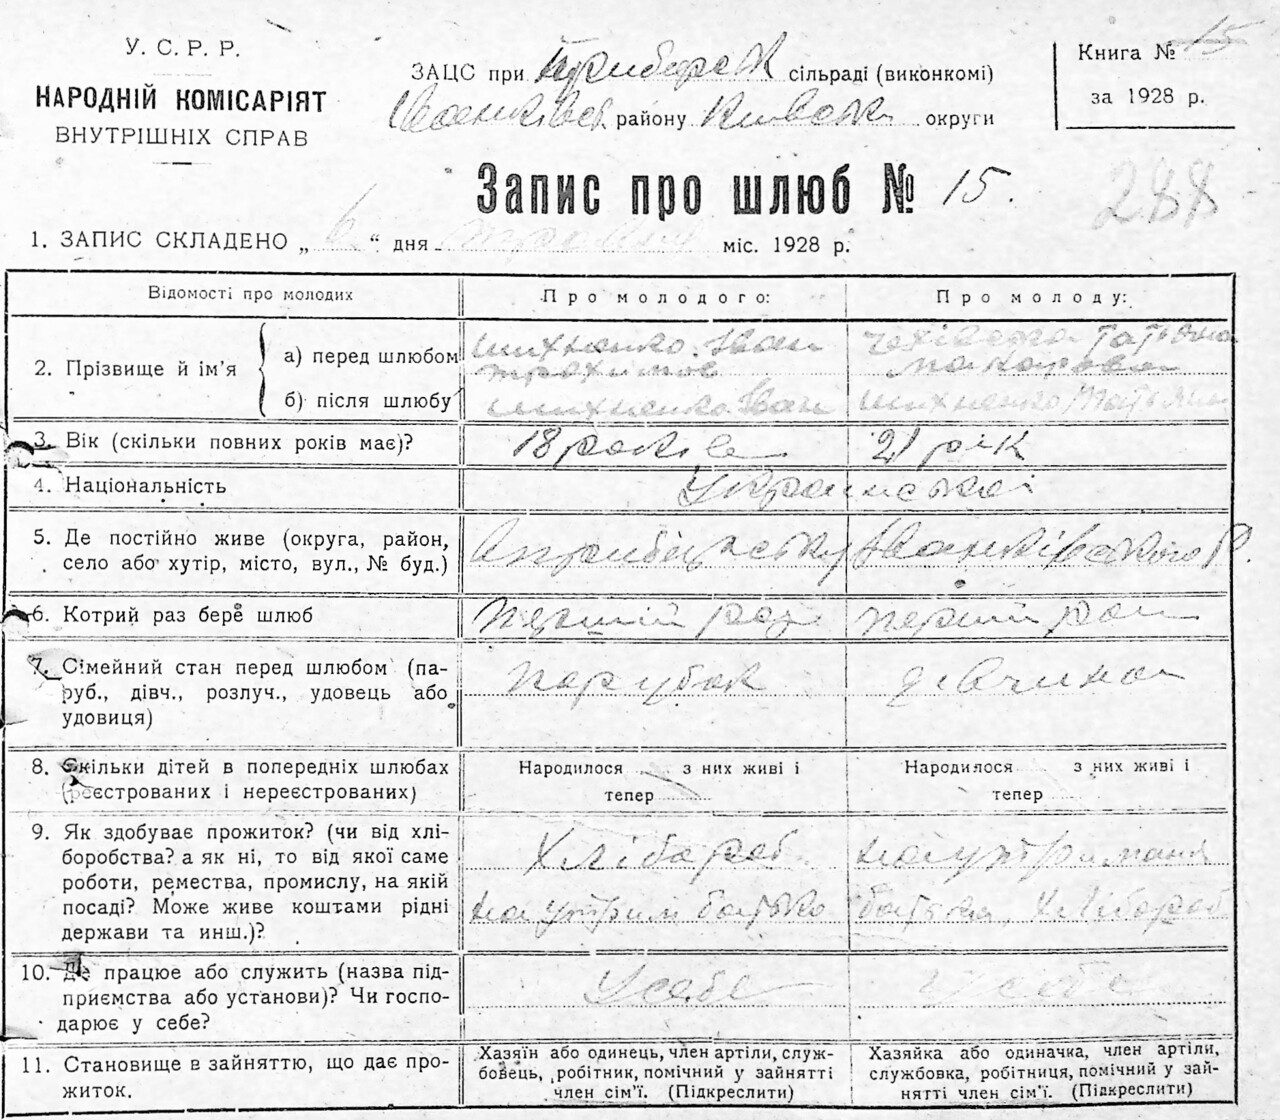 У. С. Р. Р.
НАРОДНІЙ КОМІСАРІЯТ
ВНУТРІШНІХ СПРАВ
ЗАЦС при сільраді (виконкомі)
району округи
Книга № 15
за 1928 р.
Запис про шлюб № 15.
288
1. ЗАПИС СКЛАДЕНО „ 6 “ дня міс. 1928 р.
Відомості про молодих
Про молодого:
Про молоду:
2. Прізвище й ім'я
а) перед шлюбом
Шихненко Іван
Трохимов
Чехівська Татьяна
Макарова
б) після шлюбу
Шихненко Іван
Шихненко Татьяни
3. Вік (скільки повних років має)?
18 років
21 рік
4. Національність
Українська
5. Де постійно живе (округа, район,
село або хутір, місто, вул., № буд.)
Іванківського Р.
6. Котрий раз бере шлюб
перший раз
перший раз
7. Сімейний стан перед шлюбом (па-
руб., дівч., розлуч., удовець або
удовиця)
парубок
дівчина
8. Скільки дітей в попередніх шлюбах
(реєстрованих і нереєстрованих)
Народилося з них живі і
тепер
Народилося з них живі і
тепер
9. Як здобуває прожиток? (чи від хлі-
боробства? а як ні, то від якої саме
роботи, ремества, промислу, на якій
посаді? Може живе коштами рідні
держави та инш.)?
Хлібороб
на утрим батько
на утримана
батька Хлібороб
10. Де працює або служить (назва під-
приємства або установи)? Чи госпо-
дарює у себе?
У себе
У себе
11. Становище в зайняттю, що дає про-
житок.
Хазяїн або одинець, член артіли, служ-
бовець, робітник, помічний у зайнятті
член сім'ї. (Підкреслити)
Хазяйка або одиначка, член артіли,
службовка, робітниця, помічний у зай-
нятті член сім'ї. (Підкреслити)